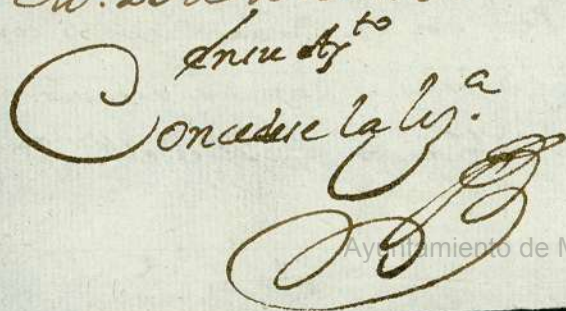 En su Ay.to
Concedese la liz.a
Ayuntamiento de M